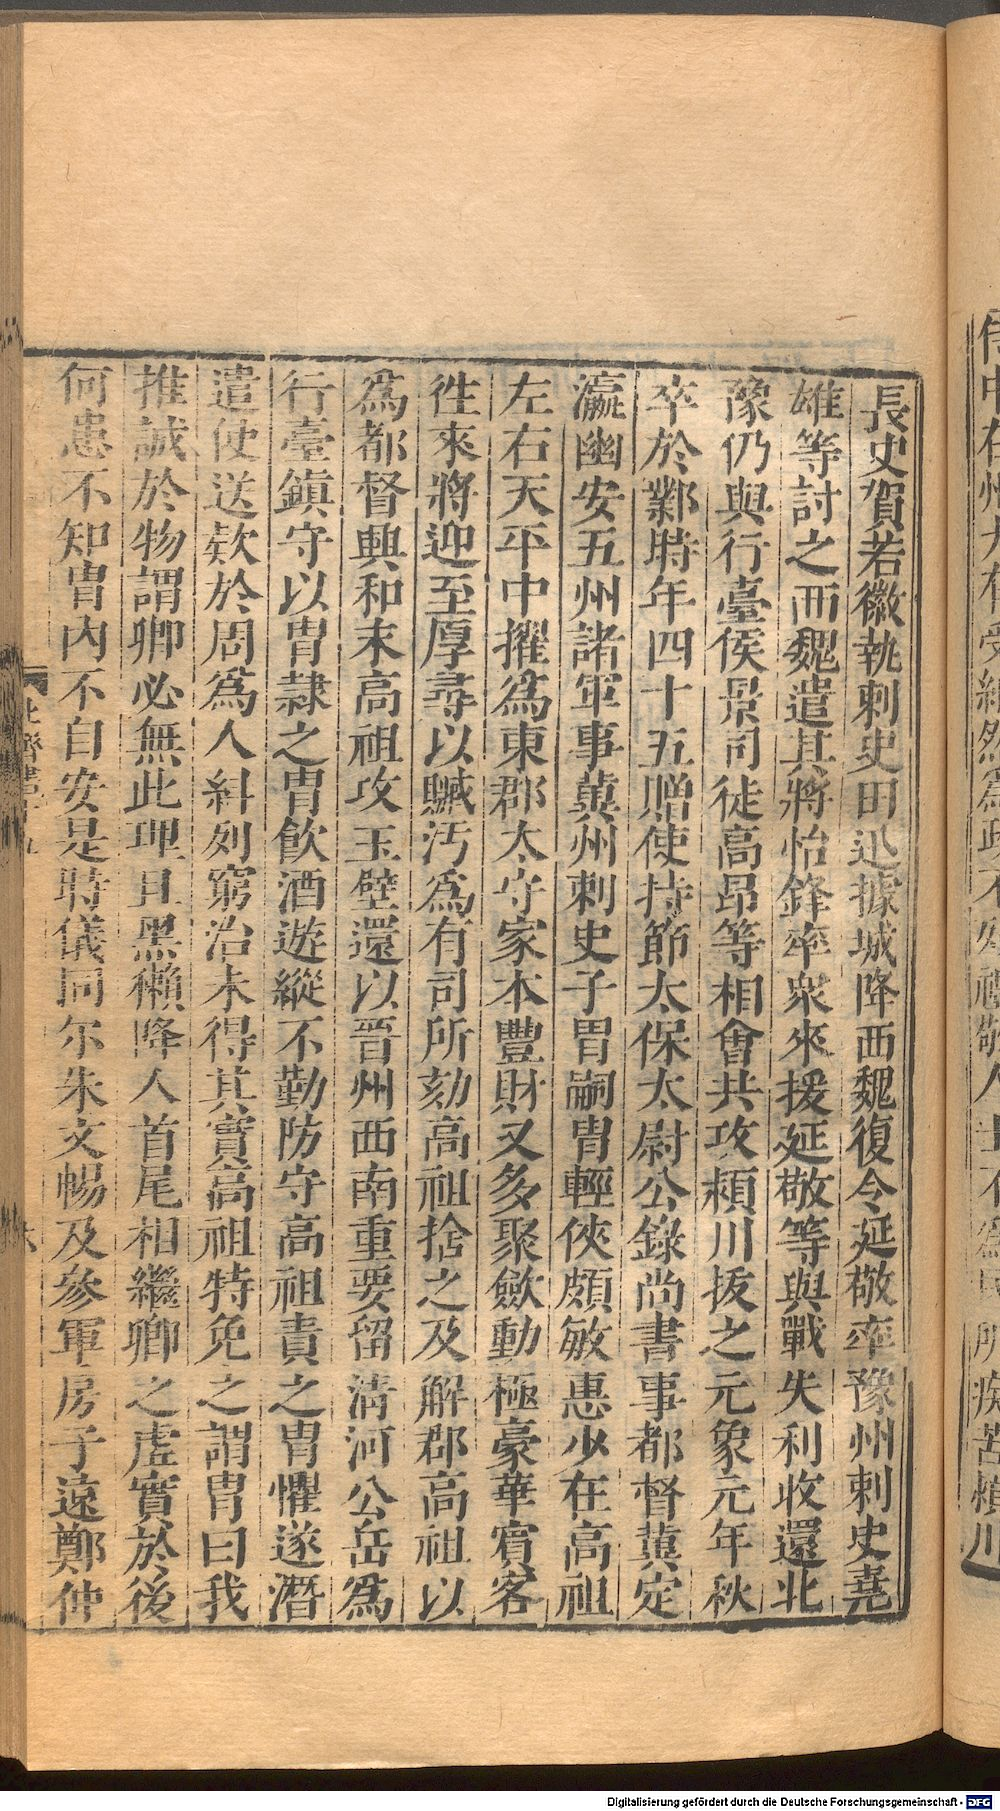 長史賀若徽執刺史田迅據城降西魏復令延敬率豫州刺史堯
雄等討之而魏遣其將怡鋒率衆來援延敬等與戰失利收還北
豫仍與行臺侯景司徒高昂等相會共攻潁川拔之元象元年秋
卒於鄴時年四十五贈使持節太保太尉公錄尚書事都督冀定
瀛幽安五州諸軍事冀州刺史子胄嗣胄輕俠頗敏惠少在高祖
左右天平中擢爲東郡太守家本豐財又多聚斂動極豪華賓客
徃來將迎至厚尋以贓汚爲有司所劾高祖捨之及解郡高祖以
爲都督興和末高祖攻玉壁還以晉州西南重要留清河公岳爲
行臺鎮守以胄隷之胄飲酒遊縱不勤防守高祖責之胄懼遂潛
遣使送欵於周爲人糾列窮治未得其實高祖特免之謂胄曰我
推誠於物謂卿必無此理且黑獺降人首尾相繼卿之虛實於後
何患不知胄內不自安是時儀同尔朱文暢及參軍房子遠鄭仲
Digitalisierung gefördert durch die Deutsche Forschungsgemeinschaft - DFG